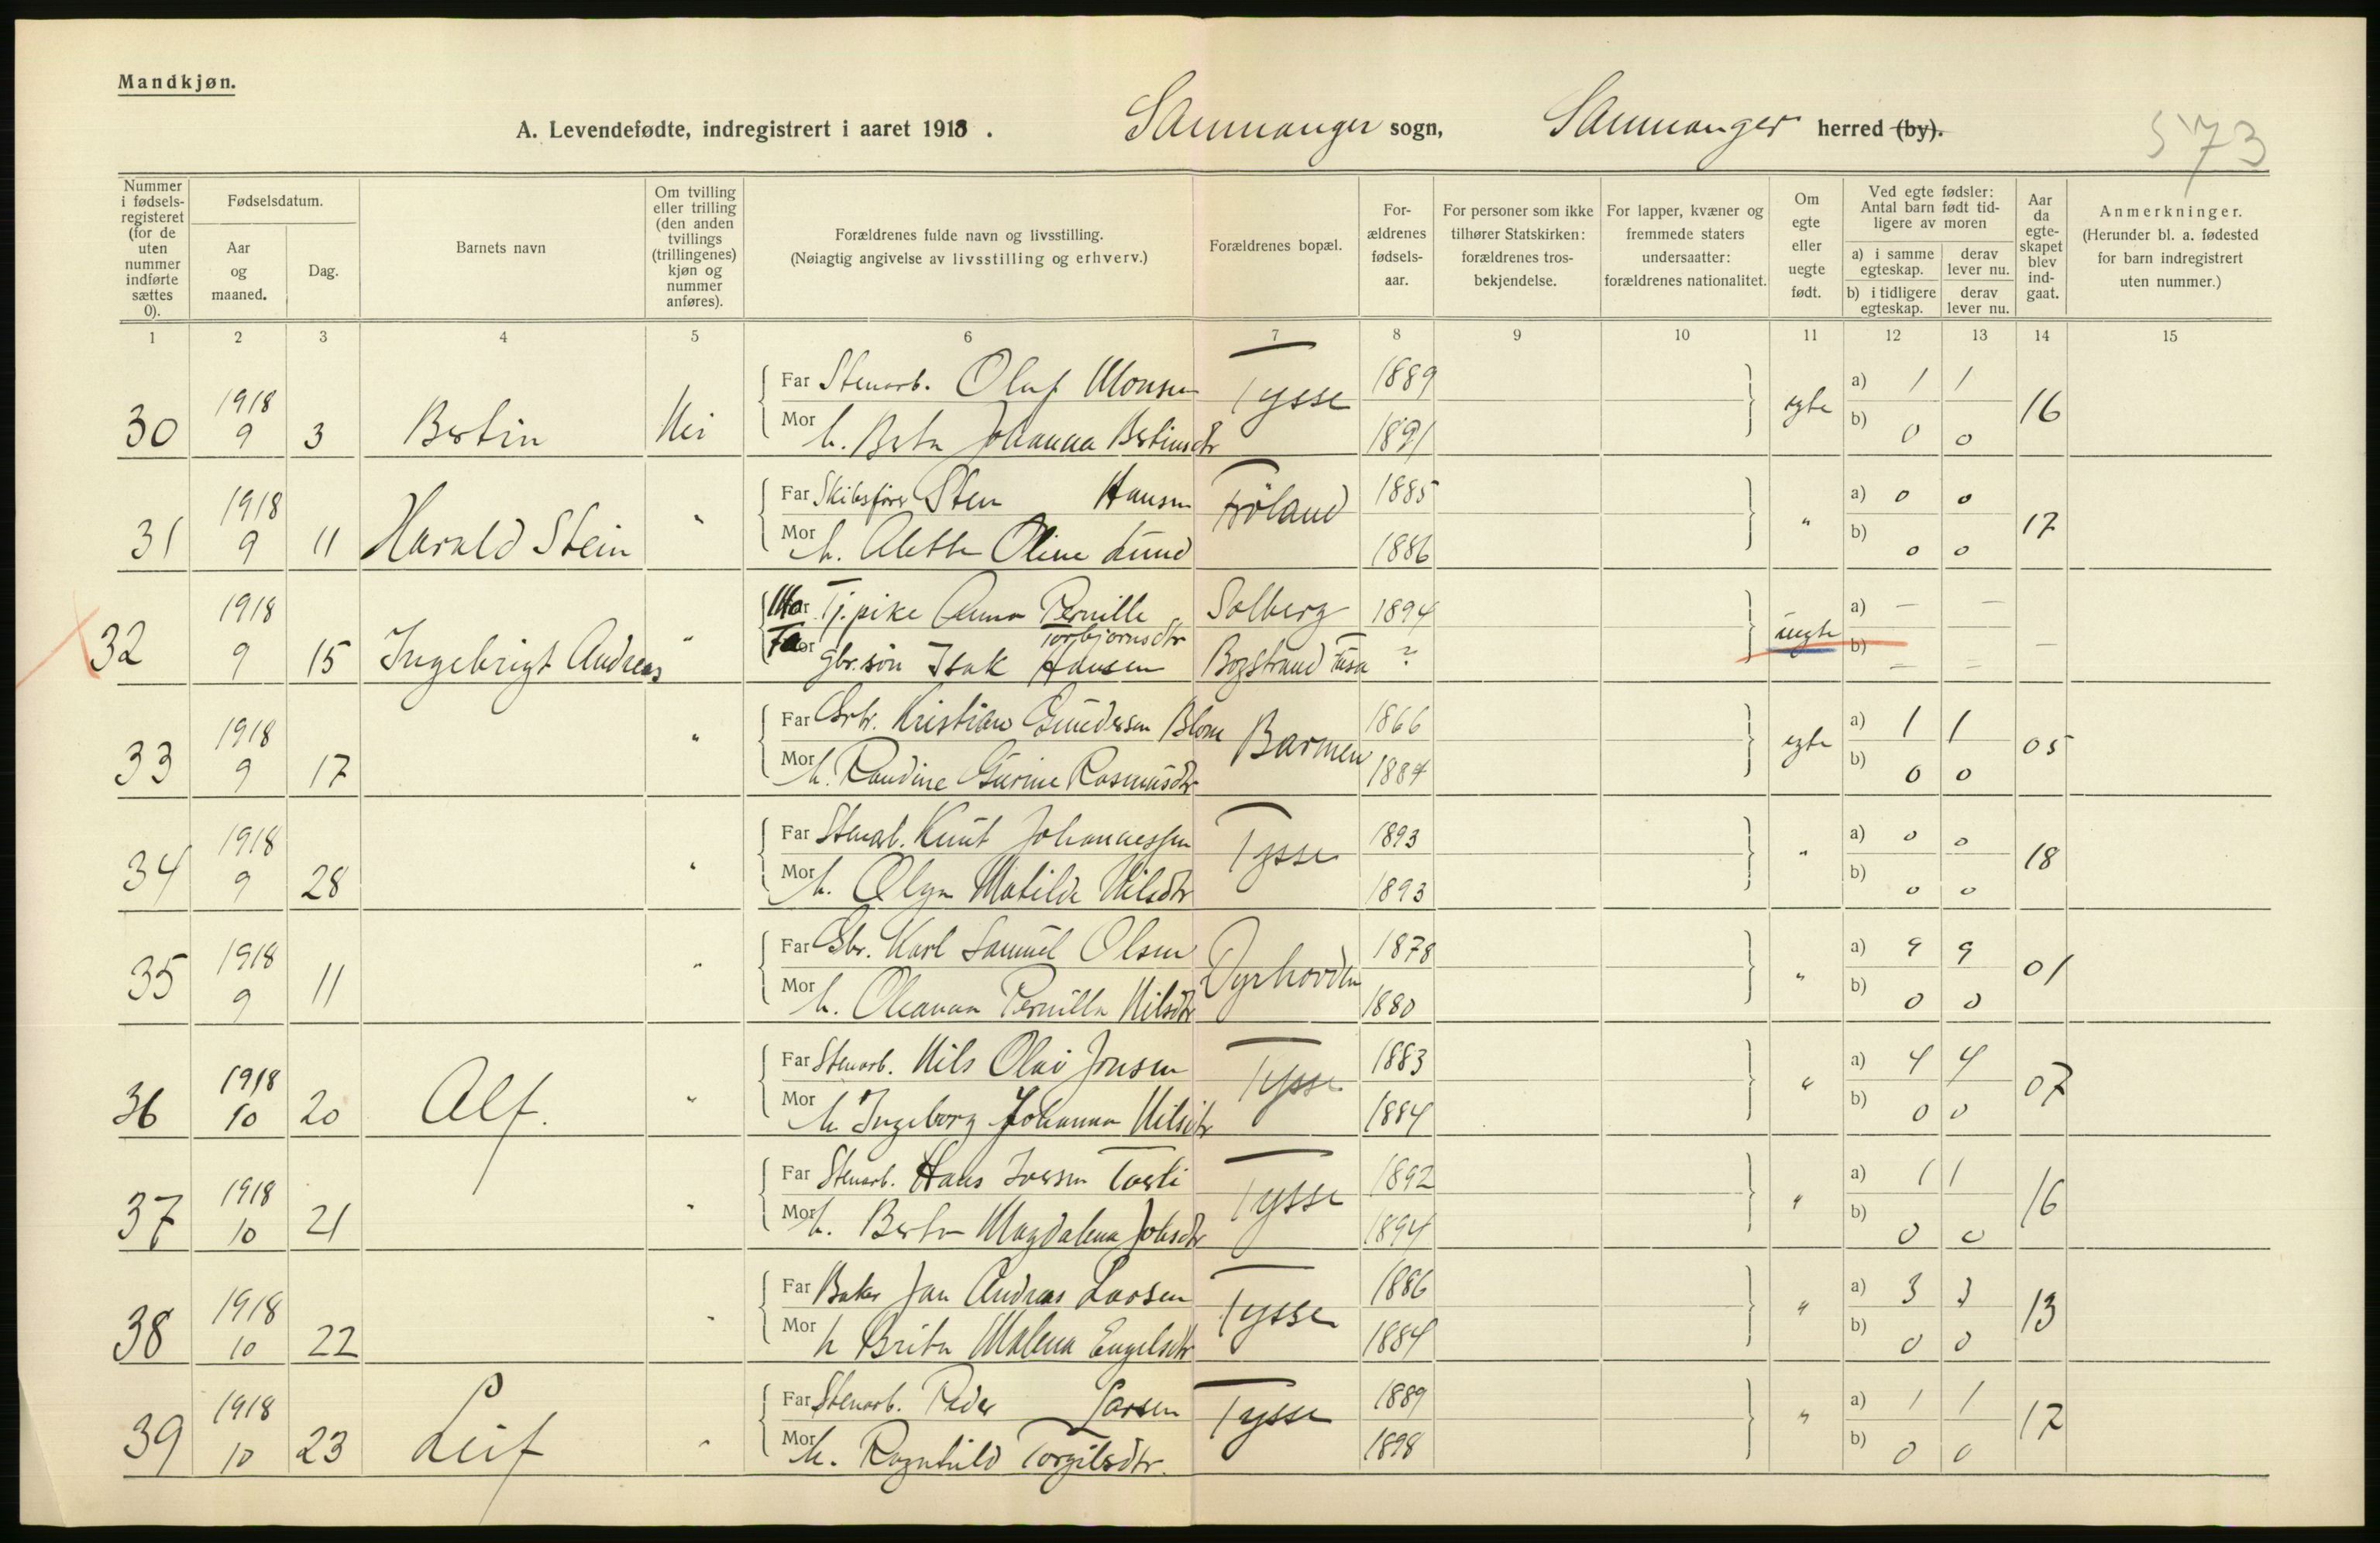 Mandkjøn.
A. Levendefødte, indregistrert i aaret 1918. Samnanger sogn, Samnanger herred (by).
573
Nummer i fødselsregisteret (for de uten nummer indførte sættes 0).
Fødselsdatum.
Aar og maaned.
Dag.
Barnets navn
Om tvilling eller trilling (den anden tvillings (trillingenes) kjøn og nummer anføres).
Forældrenes fulde navn og livsstilling.
(Nøiagtig angivelse av livsstilling og erhverv.)
Forældrenes bopæl.
Forældrenes fødselsaar.
For personer som ikke tilhører Statskirken: forældrenes trosbekjendelse.
For lapper, kvæner og fremmede staters undersaatter: forældrenes nationalitet.
Om egte eller uegte født.
Ved egte fødsler: Antal barn født tidligere av moren
a) i samme egteskap.
derav lever nu.
b) i tidligere egteskap.
derav lever nu.
Aar da egteskapet blev indgaat.
Anmerkninger.
(Herunder bl. a. fødested for barn indregistrert uten nummer.)
1 2 3 4 5 6 7 8 9 10 11 12 13 14 15
Far Stenarb. Oluf Monsen Tysse 1889 a) 1 1
30 1918 9 3 Bertin Nei egte 16
Mor h. Berta Johanna Bertinsdtr 1891 b) 0 0
Far Skibsfører Sten Hansen Frøland 1885 a) 0 0
31 1918 9 11 Harald Stein " " 17
Mor h. Alette Oline Lund 1886 b) 0 0
Mor Tj.pike Anna Pernille Torbjørnsdtr Solberg 1894 a) — —
32 1918 9 15 Ingebrigt Andreas " uegte —
Far gbr.søn Isak Hansen Bogstrand Fusa ? b) — —
Far Gbr. Kristian Gundersen Blom Barmen 1866 a) 1 1
33 1918 9 17 " egte 05
Mor h. Randine Gurine Rasmusdtr 1884 b) 0 0
Far Stenarb. Knut Johannessen Tysse 1893 a) 0 0
34 1918 9 28 " " 18
Mor h. Olga Matilde Nilsdtr 1893 b) 0 0
Far Gbr. Karl Samuel Olsen Dyrhovden 1878 a) 9 9
35 1918 9 11 " " 01
Mor h. Oleanna Pernille Nilsdtr 1880 b) 0 0
Far Stenarb. Nils Olai Jonsen Tysse 1883 a) 4 4
36 1918 10 20 Alf. " " 07
Mor h. Ingeborg Johanna Nilsdtr 1884 b) 0 0
Far Stenarb. Hans Iversen Tveti Tysse 1892 a) 1 1
37 1918 10 21 " " 16
Mor h. Berta Magdalena Johsdtr 1894 b) 0 0
Far Baker Jan Andreas Larsen Tysse 1886 a) 3 3
38 1918 10 22 " " 13
Mor h Brita Malena Engelsdtr 1884 b) 0 0
Far Stenarb. Peder Larsen Tysse 1889 a) 1 1
39 1918 10 23 Leif " " 17
Mor h. Ragnhild Torgilsdtr. 1898 b) 0 0